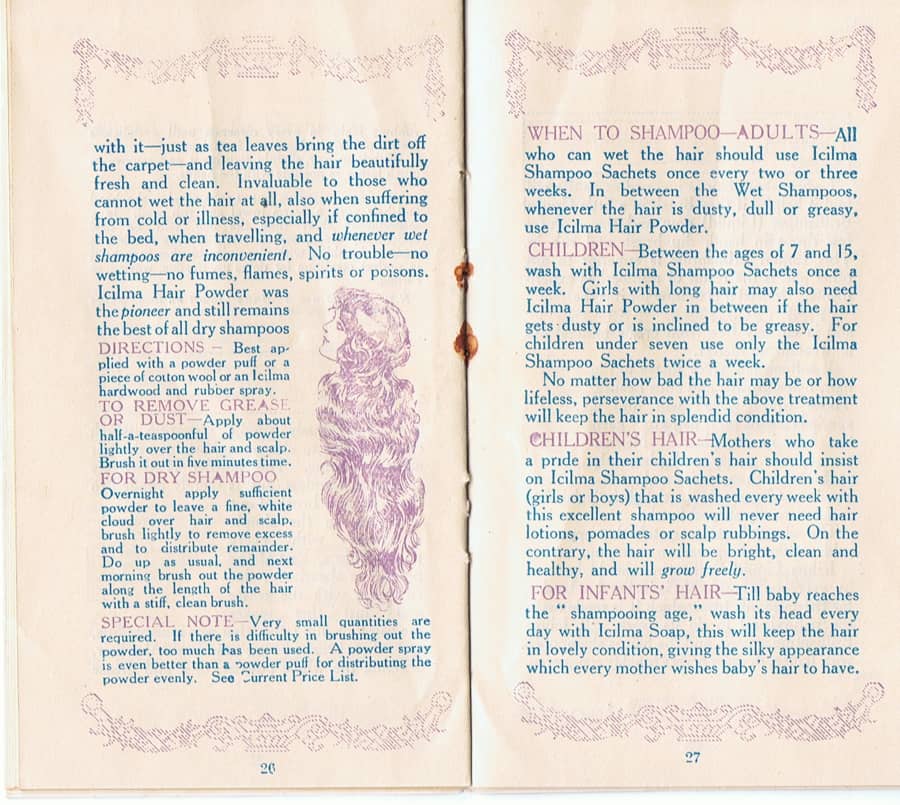 with it—just as tea leaves bring the dirt off
the carpet—and leaving the hair beautifully
fresh and clean. Invaluable to those who
cannot wet the hair at all, also when suffering
from cold or illness, especially if confined to
the bed, when travelling, and whenever wet
shampoos are inconvenient. No trouble—no
wetting—no fumes, flames, spirits or poisons.
Icilma Hair Powder was
the pioneer and still remains
the best of all dry shampoos
DIRECTIONS — Best ap-
plied with a powder puff or a
piece of cotton wool or an Icilma
hardwood and rubber spray.
TO REMOVE GREASE
OR DUST—Apply about
half-a-teaspoonful of powder
lightly over the hair and scalp.
Brush it out in five minutes time.
FOR DRY SHAMPOO
Overnight apply sufficient
powder to leave a fine, white
cloud over hair and scalp,
brush lightly to remove excess
and to distribute remainder.
Do up as usual, and next
morning brush out the powder
along the length of the hair
with a stiff, clean brush.
SPECIAL NOTE—Very small quantities are
required. If there is difficulty in brushing out the
powder, too much has been used. A powder spray
is even better than a powder puff for distributing the
powder evenly. See Current Price List.
26
WHEN TO SHAMPOO—ADULTS—All
who can wet the hair should use Icilma
Shampoo Sachets once every two or three
weeks. In between the Wet Shampoos,
whenever the hair is dusty, dull or greasy,
use Icilma Hair Powder.
CHILDREN—Between the ages of 7 and 15,
wash with Icilma Shampoo Sachets once a
week. Girls with long hair may also need
Icilma Hair Powder in between if the hair
gets dusty or is inclined to be greasy. For
children under seven use only the Icilma
Shampoo Sachets twice a week.
No matter how bad the hair may be or how
lifeless, perseverance with the above treatment
will keep the hair in splendid condition.
CHILDREN'S HAIR—Mothers who take
a pride in their children's hair should insist
on Icilma Shampoo Sachets. Children's hair
(girls or boys) that is washed every week with
this excellent shampoo will never need hair
lotions, pomades or scalp rubbings. On the
contrary, the hair will be bright, clean and
healthy, and will grow freely.
FOR INFANTS' HAIR—Till baby reaches
the "shampooing age," wash its head every
day with Icilma Soap, this will keep the hair
in lovely condition, giving the silky appearance
which every mother wishes baby's hair to have.
27